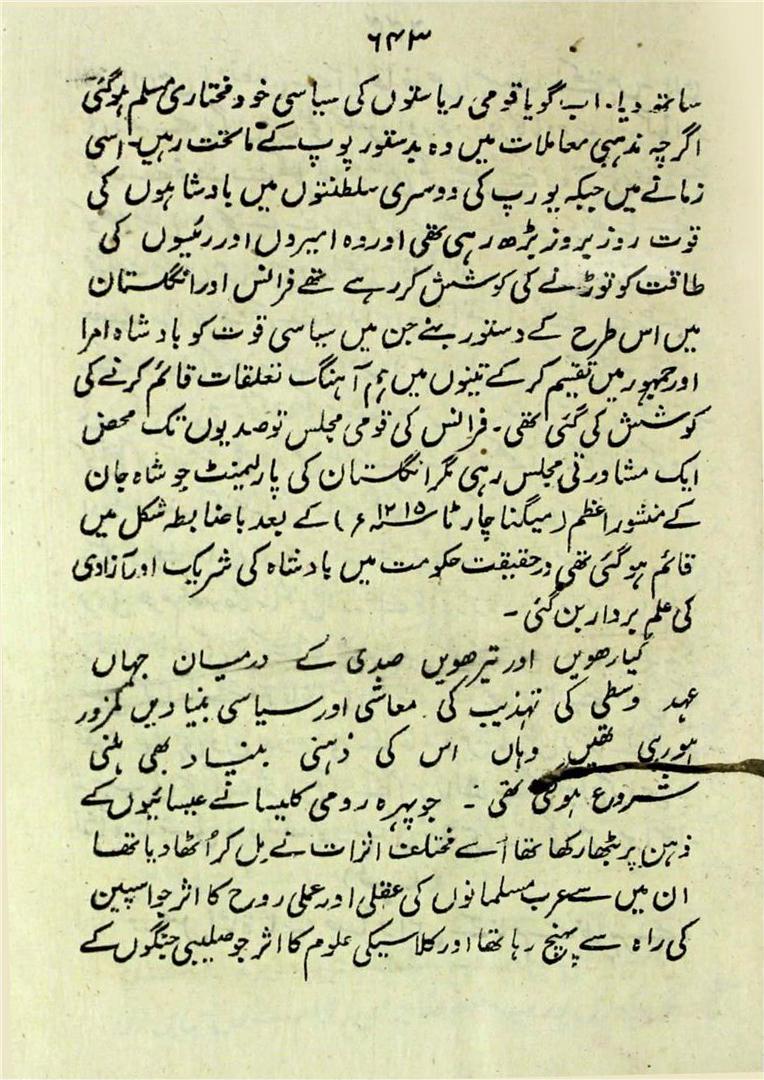 ۶۴۳
ساتھ دیا۔ اب گویا قومی ریاستوں کی سیاسی خود مختاری مسلم ہوگئی
اگرچہ مذہبی معاملات میں وہ بدستور پوپ کے ماتحت رہیں۔ اسی
زمانے میں جبکہ یورپ کی دوسری سلطنتوں میں بادشاہوں کی
قوت روز بروز بڑھ رہی تھی اور وہ امیروں اور رئیسوں کی
طاقت کو توڑنے کی کوشش کر رہے تھے فرانس اور انگلستان
میں اس طرح کے دستور بنے جن میں سیاسی قوت کو بادشاہ امرا
اور جمہور میں تقسیم کرکے تینوں میں ہم آہنگ تعلقات قائم کرنے کی
کوشش کی گئی تھی۔ فرانس کی قومی مجلس تو صدیوں تک محض
ایک مشاورتی مجلس رہی مگر انگلستان کی پارلیمنٹ جو شاہ جان
کے منشور اعظم (میگنا چارٹا ۱۲۱۵ء) کے بعد باضابطہ شکل میں
قائم ہوگئی تھی درحقیقت حکومت میں بادشاہ کی شریک اور آزادی
کی علم بردار بن گئی۔
گیارھویں اور تیرھویں صدی کے درمیان جہاں
عہد وسطی کی تہذیب کی معاشی اور سیاسی بنیادیں کمزور
ہورہی تھیں وہاں اس کی ذہنی بنیاد بھی ہلنی
شروع ہوگئی تھی ۔ جو پہرہ رومی کلیسا نے عیسائیوں کے
ذہن پر بٹھا رکھا تھا اُسے مختلف اثرات نے مل کر اُٹھا دیا تھا
ان میں سے عرب مسلمانوں کی عقلی اور عملی روح کا اثر جو اسپین
کی راہ سے پہنچ رہا تھا اور کلاسیکی علوم کا اثر جو صلیبی جنگوں کے